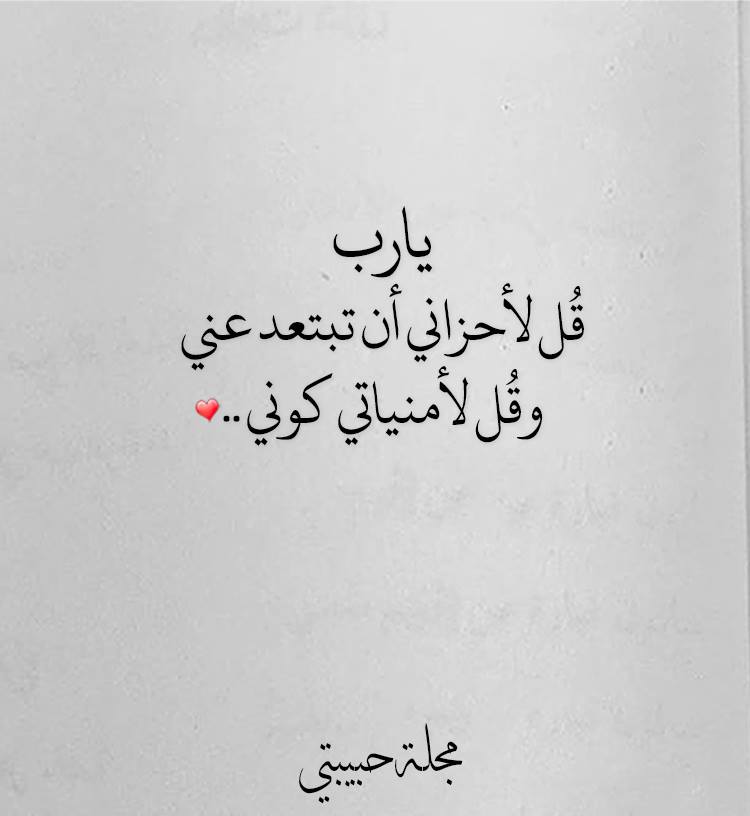 يارب
قُل لأحزاني أن تبتعد عني
وقُل لأمنياتي كوني ..❤
مجلة حبيبتي